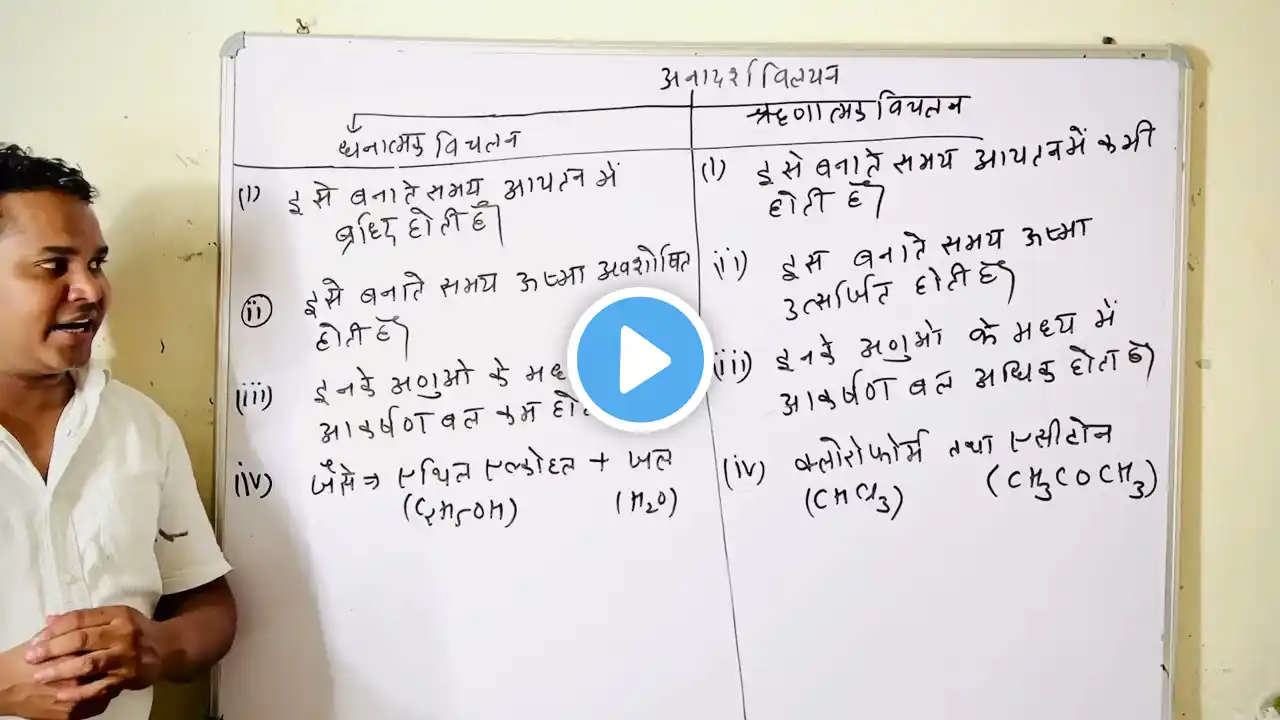 अनादर्श विलयन
धनात्मक विचलन
(i) इसे बनाते समय आयतन में
ब्रध्दि होती है|
(ii) इसे बनाते समय ऊष्मा अवशोषित
होती है|
(iii) इनके अणुओ के मध
आकर्षण बल कम हो
(iv) जैसे ⇒ एथिल एल्कोहल + जल
(C2H5OH) (H2O)
ऋणात्मक विचलन
(i) इसे बनाते समय आयतन में कमी
होती है|
(ii) इसे बनाते समय ऊष्मा
उत्सर्जित होती है|
(iii) इनके अणुओ के मध्य में
आकर्षण बल अधिक होता है|
(iv) क्लोरोफोर्म तथा एसीटोन
(CHCl3) (CH3COCH3)